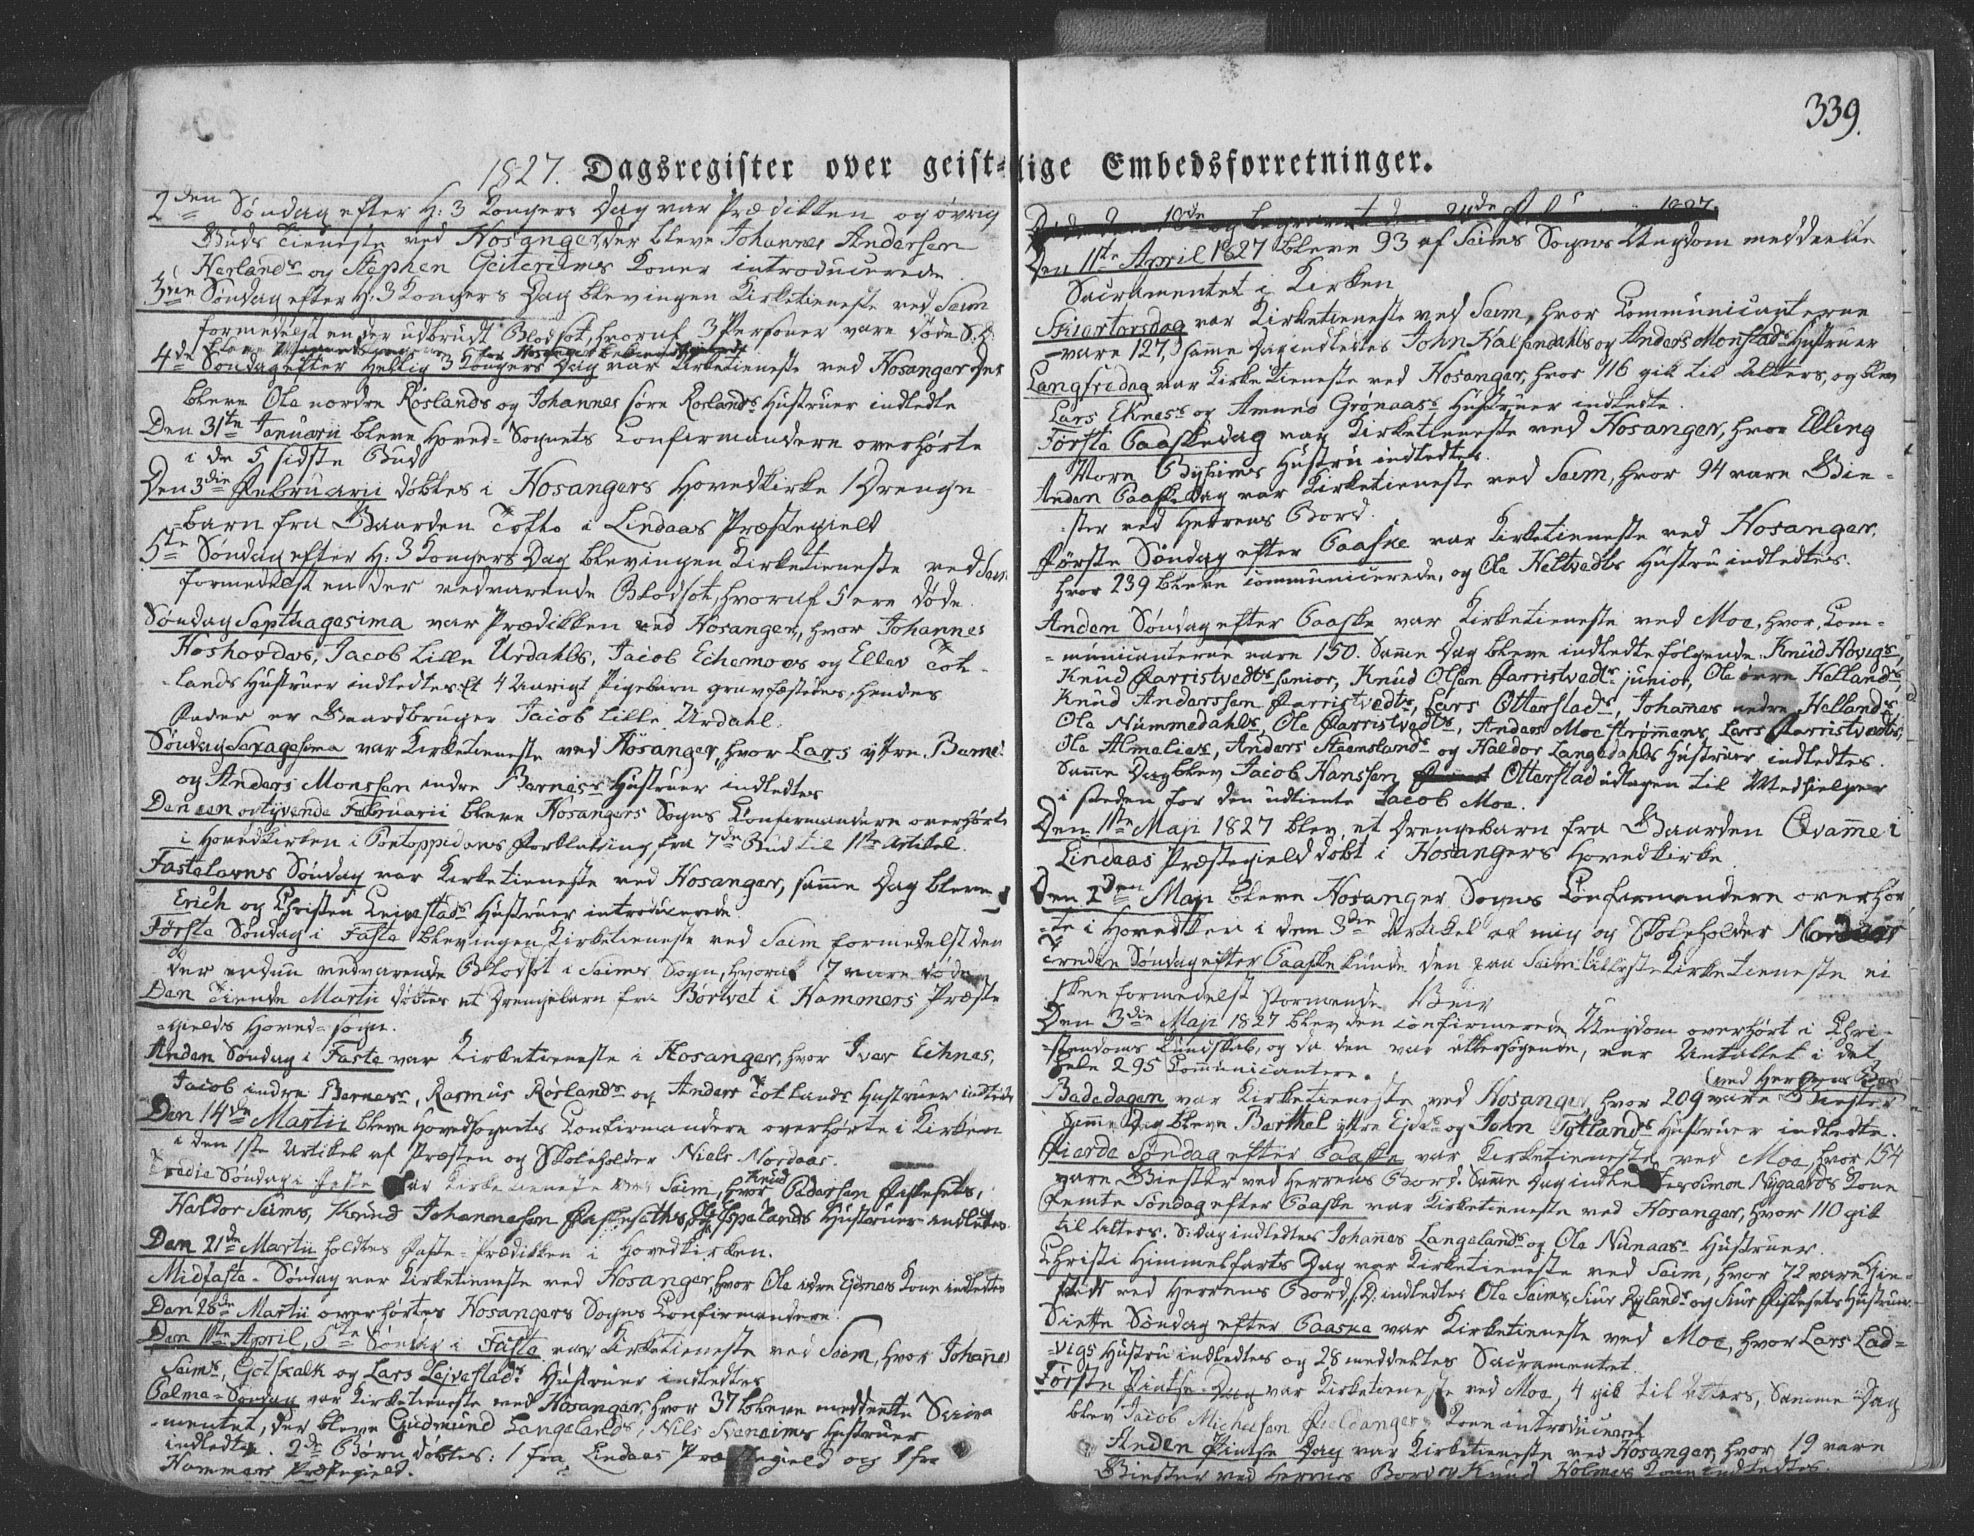 339.
1827. Dagsregister over geist-lige Embedsforretninger.
2den Søndag efter H: 3 Kongers Dag var Prædikken og øvrig
Guds Tieneste ved Hosanger, der bleve Johannes Andersen
Herlands og Stephen Geitereims Koner introducerede.
3die Søndag efter H: 3 Kongers Dag blev ingen Kirketieneste ved Seim
formedelst en der udbrudt Blodsot, hvoraf 3 Personer vare døde
4de Søndag efter Hellig 3 Kongers Dag var Kirketieneste ved Hosanger Der
bleve Ole nordre Röslands og Johannes søre Roslands Hustruer indledte
Den 31te Januarii bleve Hoved-Sognets Confirmandere overhørte
i de 5 sidste Bud
Den 3die Februarii døbtes i Hosangers Hovedkirke 1 Drenge
barn fra Gaarden Tofte i Lindaas Præstegield
5te Søndag efter H: 3 Kongers Dag blev ingen Kirketieneste ved Seim
formedelst en der vedvarende Blodsot, hvoraf 5 ere døde.
Søndag Septuagesima var Prædikken ved Hosanger, hvor Johannes
Hoshovdes, Jacob Lille Urdahls, Jacob Echemoes og Ellev Tot-
lands Hustruer indledtes. Et 4 Aarigt Pigebarn gravfæstedes, hendes
Fader er Gaardbruger Jacob Lille Urdahl.
Søndag Sexagesima var Kirketieneste ved Hosanger, hvor Lars yttre Berne
og Anders Monssen indre Berness Hustruer indledtes
Den een og tyvende Februarii bleve Hosangers Sogns Confirmandere overhørte
i Hovedkirken i Pontoppidans Forklaring, fra 7de Bud til 1ste Artikel.
Fastelavns Søndag var Kirketieneste ved Hosanger, samme Dag bleve
Erich og Christen Leivestads Hustruer introducerede
Første Søndag i Faste blev ingen Kirketieneste ved Seim formedelst den
der endnu vedvarende Blodsot i Seims Sogn, hvoraf 7 vare døde
Den Tiende Martii døbtes et Drengebarn fra Børtvet i Hammers Præste
-gields Hoved-sogn.
Anden Søndag i Faste var Kirketieneste i Hosanger, hvor Iver Eihnes,
Jacob indre Berness, Rasmus Röslands og Anders Totlands Hustruer indledtes
Den 14de Martii bleve Hovedsognets Confirmandere overhørte i Kirken
i den 1ste Artikel af Præsten og Skoleholder Niels Nordaas.
Tredie Søndag i Faste var Kirketieneste ved Seim, hvor Knud Pedersen Fiskesets,
Haldor Seims, Knud Johannesen Fiskesæths og Ole Ispelands Hustruer indledtes
Den 21de Martii holdtes Faste-Prædikken i Hovedkirken.
Midfaste-Søndag var Kirketieneste ved Hosanger, hvor Ole indre Eidsnes Kone indledtes
Den 28de Martii overhørtes Hosangers Sogns Confirmandere.
Den 1ste April, 5te Søndag i Faste var Kirketieneste ved Seim, hvor Johannes
Seims, Gotskalk og Lars Leivestads Hustruer indledtes
Palme-Søndag var Kirketieneste ved Hosanger, hvor 37 bleve meddeelte Sacra
mentet, der bleve Gudmund Langelands, Nils Sveneims Hustruer
indledte. 2de Børn døbtes: 1 fra Lindaas Præstegield og 1 fra
Hammers Præstegield.
Den 11te April 1827 bleve 93 af Seims Sogns Ungdom meddeelte
Sacramentet i Kirken
Skiertorsdag var Kirketieneste ved Seim, hvor Communicanterne
vare 127, samme Dag indledtes John Kalsendahls og Anders Monstads Hustruer
Langfredag var Kirketieneste ved Hosanger, hvor 116 gik til Alters, og bleve
Lars Eknes og Amund Grønaas Hustruer indledte.
Første Paaskedag var Kirketieneste ved Hosanger, hvor Elling
Byheims Hustru indledtes.
Anden Paaskedag var Kirketieneste ved Seim, hvor 94 vare Giæ-
ster ved Herrens Bord.
Første Søndag efter Paaske var Kirketieneste ved Hosanger,
hvor 239 bleve communicerede, og Ole Heltvedts Hustru indledtes.
Anden Søndag efter Paaske var Kirketieneste ved Moe, hvor, Com-
municanterne vare 150. Samme Dag bleve indledte følgende: Knud Høvigs,
Knud Farristvedts senior, Knud Olsen Farristvedts junior, Ole övre Hellands,
Knud Anderssen Farristvedts, Lars Otterstads, Johannes nedre Hellands,
Ole Nummedahls, Ole Farristvedts, Anders Moestrømmens, Lars Farristvedts,
Ole Almelies, Anders Steenslands og Haldor Langedahls Hustruer indledtes.
Samme Dag blev Jacob Hanssen Otterstad udtagen til Medhielper
i steden for den udtiente Jacob Moe.
Den 1ste Maji 1827 blev et Drengebarn fra Gaarden Qvamme i
Lindaas Præstegield døbt i Hosangers Hovedkirke
Den 2den Maji bleve Hosanger Sogns Confirmandere overhør
te i Hovedkirken i den 3die Artikel af mig og Skoleholder Nordaas
Tredie Søndag efter Paaske kunde den paa Seim tillyste Kirketieneste ei
skee formedelst stormende Veir
Den 3die Maji 1827 blev den confirmerede Ungdom overhørt i Chri-
stendoms Kundskab, og da den var altersøgende, var Antallet i det
hele 295 Communicantere.
Bededagen var Kirketieneste ved Hosanger, hvor 209 vare Giester (ved Herrens Bord
Samme Dag bleve Barthel yttre Eides og John Tytlands Hustruer indledte.
Fierde Søndag efter Paaske var Kirketieneste ved Moe, hvor 154
vare Giester ved Herrens Bord. Samme Dag indledtes Simon Nygaards Kone
Femte Søndag efter Paaske var Kirketieneste ved Hosanger, hvor 110 gik
til Alters. S: Dag indledtes Johannes Langelands og Ole Nunaas Hustruer.
Christi Himmelfarts Dag var Kirketieneste ved Seim, hvor 72 vare Gie-
ster ved Herrens Bord, S: D: indledtes Ole Seims, Siur Rylands og Siur Fiskesets Hustruer.
Siette Søndag efter Paaske var Kirketieneste ved Moe, hvor Lars Lad-
vigs Hustru indledtes og 28 meddeeltes Sacramentet.
Første Pintse-Dag var Kirketieneste ved Moe, 4 gik til Alters, Samme Dag
blev Jacob Michelsen Fieldangers Kone introduceret
Anden Pintse Dag var Kirketieneste ved Hosanger, hvor 19 vare
Giester ved Herrens Bord og Knud Holmes Kone indledtes.